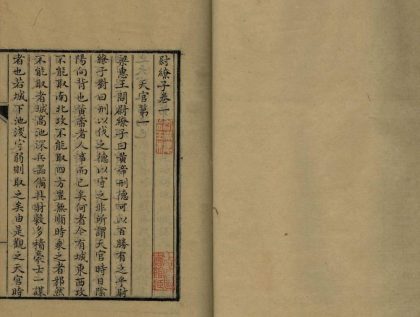 尉繚子卷一
天官第一
梁惠王問尉繚子曰黃帝刑德可以百勝有之乎尉
繚子對曰刑以伐之德以守之非所謂天官時日陰
陽向背也黃帝者人事而已矣何者今有城東西攻
不能取南北攻不能取四方豈無順時乘之者耶然
不能取者城高池深兵器備具財穀多積豪士一謀
者也若城下池淺守弱則取之矣由是觀之天官時